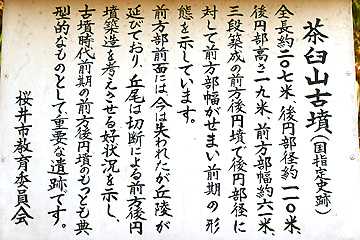 茶臼山古墳(国指定史跡)
全長約二〇七米、後円部径約一一〇米、
後円部高さ二一九米、前方部幅約六一米、
三段築成の前方後円墳で後円部径に
対して前方部幅がせまい前期の形
態を示しています。
前方部前面には、今は失われたが丘陵が
延びており、丘尾は切断による前方後円
墳築造を考えさせる好状況を示し、
古墳時代前期の前方後円墳のもっとも典
型的なものとして重要な遺跡です。
桜井市教育委員会